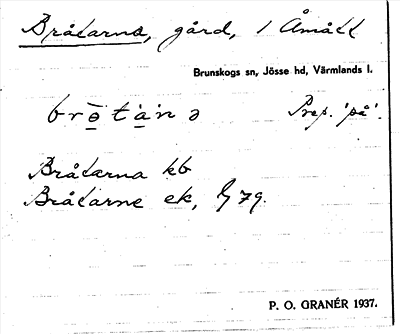 Bråtarna, gård, 1 Åmått
Brunskogs sn, Jösse hd, Värmlands l.
Prep. 'på'.
Bråtarna kb
Bråtarne ek, 79.
P. O. GRANÉR 1937.